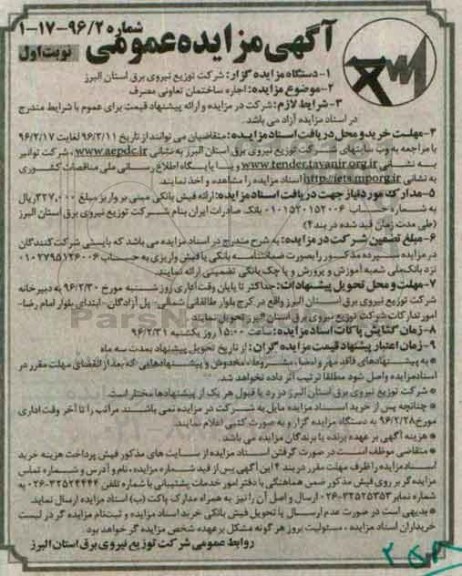 شماره ۹۶/۲-۱۷-۱
آگهی مزایده عمومی
نوبت اول
۱- دستگاه مزایده گزار: شرکت توزیع نیروی برق استان البرز
۲- موضوع مزایده: اجاره ساختمان تعاونی مصرف
۳- شرایط لازم: شرکت در مزایده و ارائه پیشنهاد قیمت برای عموم با شرایط مندرج
در اسناد مزایده آزاد می باشد.
۴- مهلت خرید و محل دریافت اسناد مزایده: متقاضیان می توانند از تاریخ ۹۶/۲/۱۱ لغایت ۹۶/۲/۱۷
با مراجعه به وب سایتهای شرکت توزیع نیروی برق استان البرز به نشانی www.aepdc.ir، شرکت توانیر
به نشانی www.tender.tavanir.org.ir و یا پایگاه اطلاع رسانی ملی مناقصات کشوری
http://iets.mporg.ir اسناد مزایده را مشاهده و اخذ نمایند.
۵- مدارک مورد نیاز جهت دریافت اسناد مزایده: ارائه فیش بانکی مبنی بر واریز مبلغ ۳۲۷,۰۰۰ ریال
به شماره حساب ۰۱۰۱۵۲۰۱۵۲۰۰۶ بانک صادرات ایران بنام شرکت توزیع نیروی برق استان البرز
(طی مدت زمان قید شده در بند ۴)
۶- مبلغ تضمین شرکت در مزایده: به شرح مندرج در اسناد مزایده می باشد که بایستی شرکت کنندگان
در مزایده سپرده مذکور را بصورت ضمانتنامه بانکی یا فیش واریزی به حساب ۰۱۰۲۷۹۵۱۲۶۰۰۶
نزد بانک ملی شعبه آموزش و پرورش و یا چک بانکی تضمینی ارائه نمایند.
۷- مهلت و محل تحویل پیشنهادات: حداکثر تا پایان وقت اداری روز شنبه مورخ ۹۶/۲/۳۰ به دبیرخانه
شرکت توزیع نیروی برق استان البرز واقع در کرج بلوار طالقانی شمالی- پل آزادگان- ابتدای بلوار امام رضا-
امور تدارکات شرکت توزیع نیروی برق استان البرز تحویل نمایند.
۸- زمان گشایش پاکات اسناد مزایده: ساعت ۱۵:۰۰ روز یکشنبه ۹۶/۲/۳۱
۹- زمان اعتبار پیشنهاد قیمت مزایده گران: از تاریخ تحویل پیشنهاد بمدت سه ماه
* به پیشنهادهای فاقد مهر و امضا، مشروط، مخدوش و پیشنهادهایی که بعد از انقضای مهلت مقرر در
اسناد مزایده واصل شود مطلقا ترتیب اثر داده نخواهد شد.
* شرکت توزیع نیروی برق استان البرز در رد یا قبول هر یک از پیشنهادها مختار است.
* چنانچه پس از خرید اسناد مزایده مایل به شرکت در مزایده نمی باشند مراتب را تا آخر وقت اداری
مورخ ۹۶/۲/۲۸ به دستگاه مزایده گزار و به صورت کتبی اعلام نمایند.
* هزینه آگهی بر عهده برنده یا برندگان مزایده می باشد.
* متقاضی موظف است در صورت گرفتن اسناد مزایده از سایت های مذکور فیش پرداخت هزینه خرید
اسناد مزایده را ظرف مهلت مقرر در بند ۴ این آگهی پس از قید شماره مزایده، نام و آدرس و شماره تماس
مزایده گر بر روی فیش مذکور ضمن هماهنگی با دفتر امور خدمات پشتیبانی با شماره تلفن ۳۲۵۲۴۴۴۴-۰۲۶ به
شماره نمابر ۳۲۵۲۵۳۵۳-۰۲۶ ارسال و اصل آن را نیز به همراه مدارک پاکت (ب) اسناد مزایده ارسال نماید.
* بدیهی است در صورت عدم ارسال یا تحویل فیش بانکی خرید اسناد مزایده و ثبت نام مزایده گر در لیست
خریداران اسناد مزایده، مسئولیت بروز هر گونه مشکل بر عهده شخص مزایده گر خواهد بود.
روابط عمومی شرکت توزیع نیروی برق استان البرز